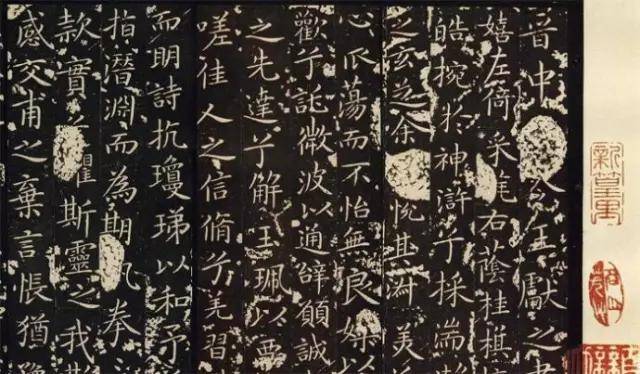 晉中令王獻之書
嬉左倚采旄右蔭桂旗
皓捥於神滸兮採湍瀨
之玄芝余悅其淑美
心振蕩而不怡無良媒
歡兮託微波以通辭願誠
之先達兮解玉珮以要
嗟佳人之信脩兮羌習
而明詩抗瓊珶以和予
指潛淵而為期執拳
款實懼斯靈之我
感交甫之棄言悵猶豫